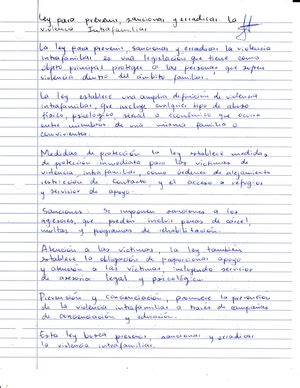 Ley para prevenir, sancionar y erradicar la
violencia Intrafamiliar
La ley para prevenir, sancionar y erradicar la violencia
intrafamiliar es una legislación que tiene como
objeto principal proteger a las personas que sufren
violencia dentro del ámbito familiar.
La ley establece una amplia definición de violencia
intrafamiliar, que incluye cualquier tipo de abuso
físico, psicológico sexual o económico que ocurra
entre miembros de una misma familia o
convivientes.
Medidas de protección la ley establece medidas
de protección inmediata para las víctimas de
violencia intrafamiliar, como órdenes de alejamiento
restricción de contacto y el acceso a refugios
y servicios de apoyo.
Sanciones: Se imponen sanciones a los
agresores, que pueden incluir penas de cárcel,
multas y programas de rehabilitación.
Atención a las víctimas, la ley también
establece la obligación de proporcionar apoyo
y atención a las víctimas, incluyendo servicios
de asesoría legal y psicológica.
Prevención y concienciación, promueve la prevención
de la violencia intrafamiliar a traves de campañas
de concienciación y educación.
Esta ley busca prevenir, sancionar y erradicar
la violencia intrafamiliar.